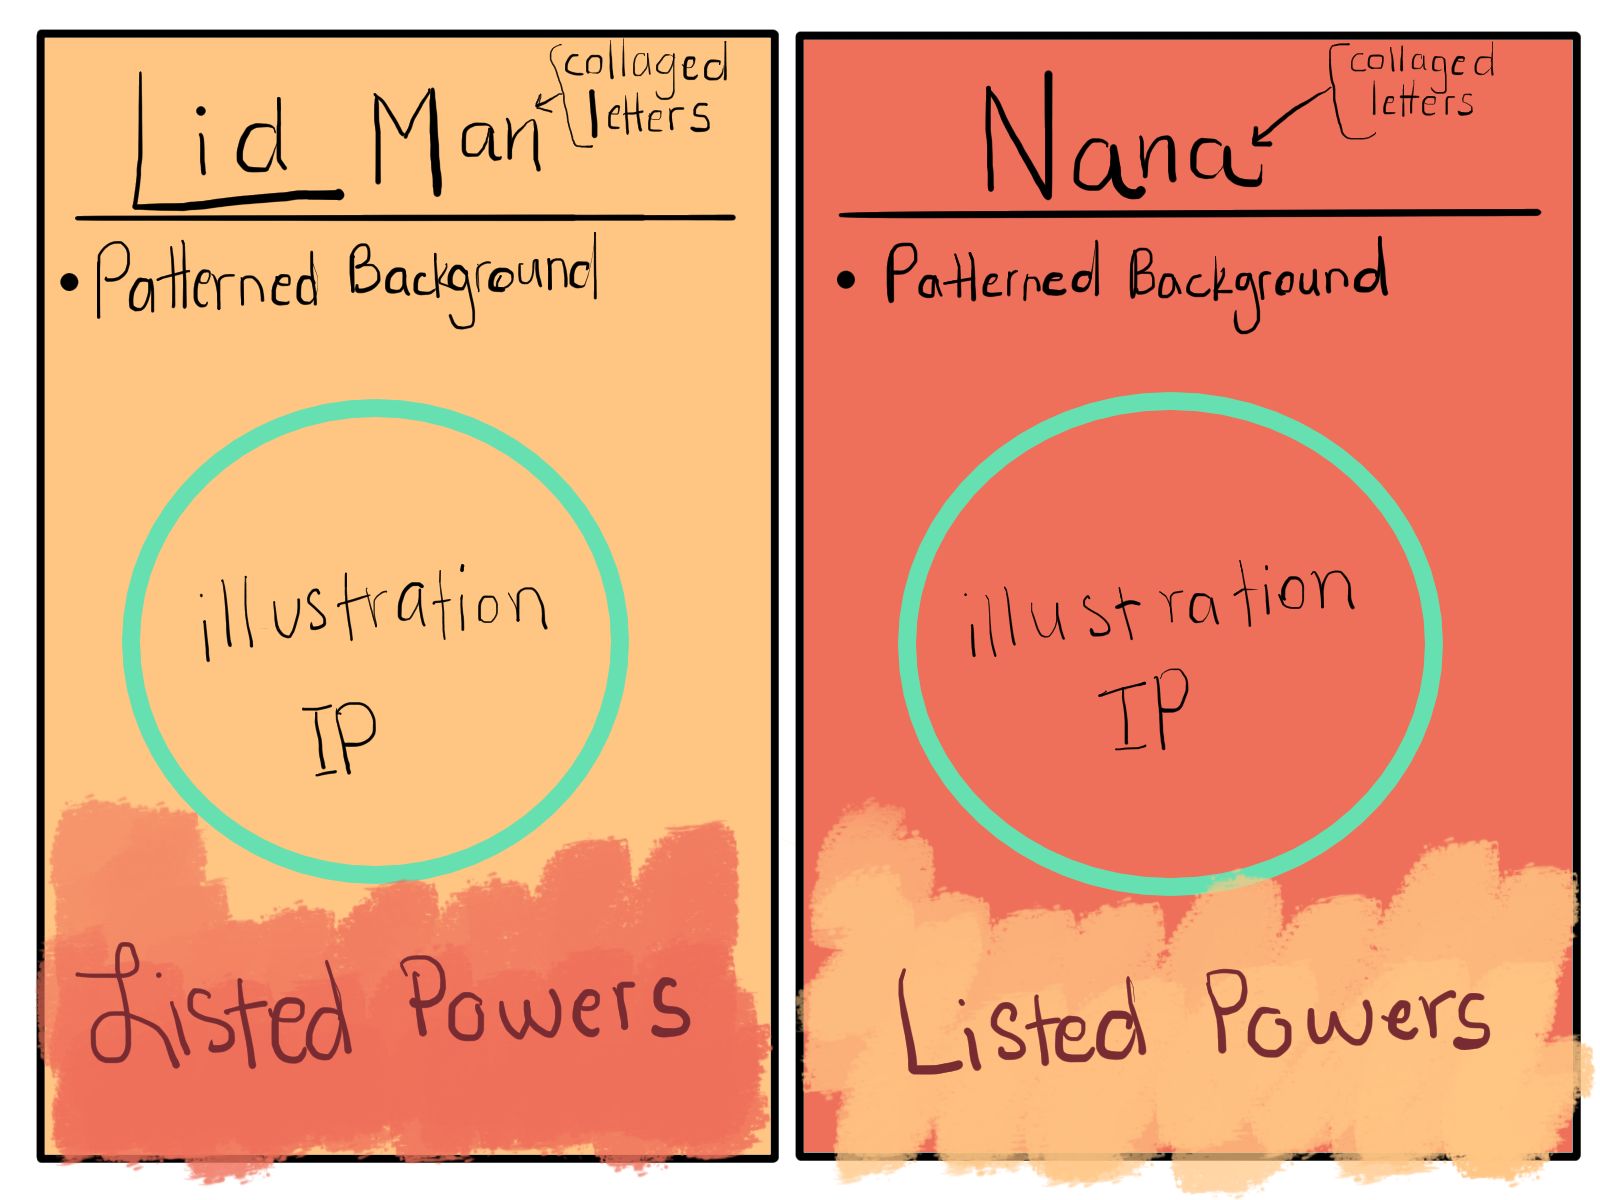 Lid Man
collaged
letters
• Patterned Background
illustration
IP
Listed Powers
Nana
collaged
letters
• Patterned Background
illustration
IP
Listed Powers